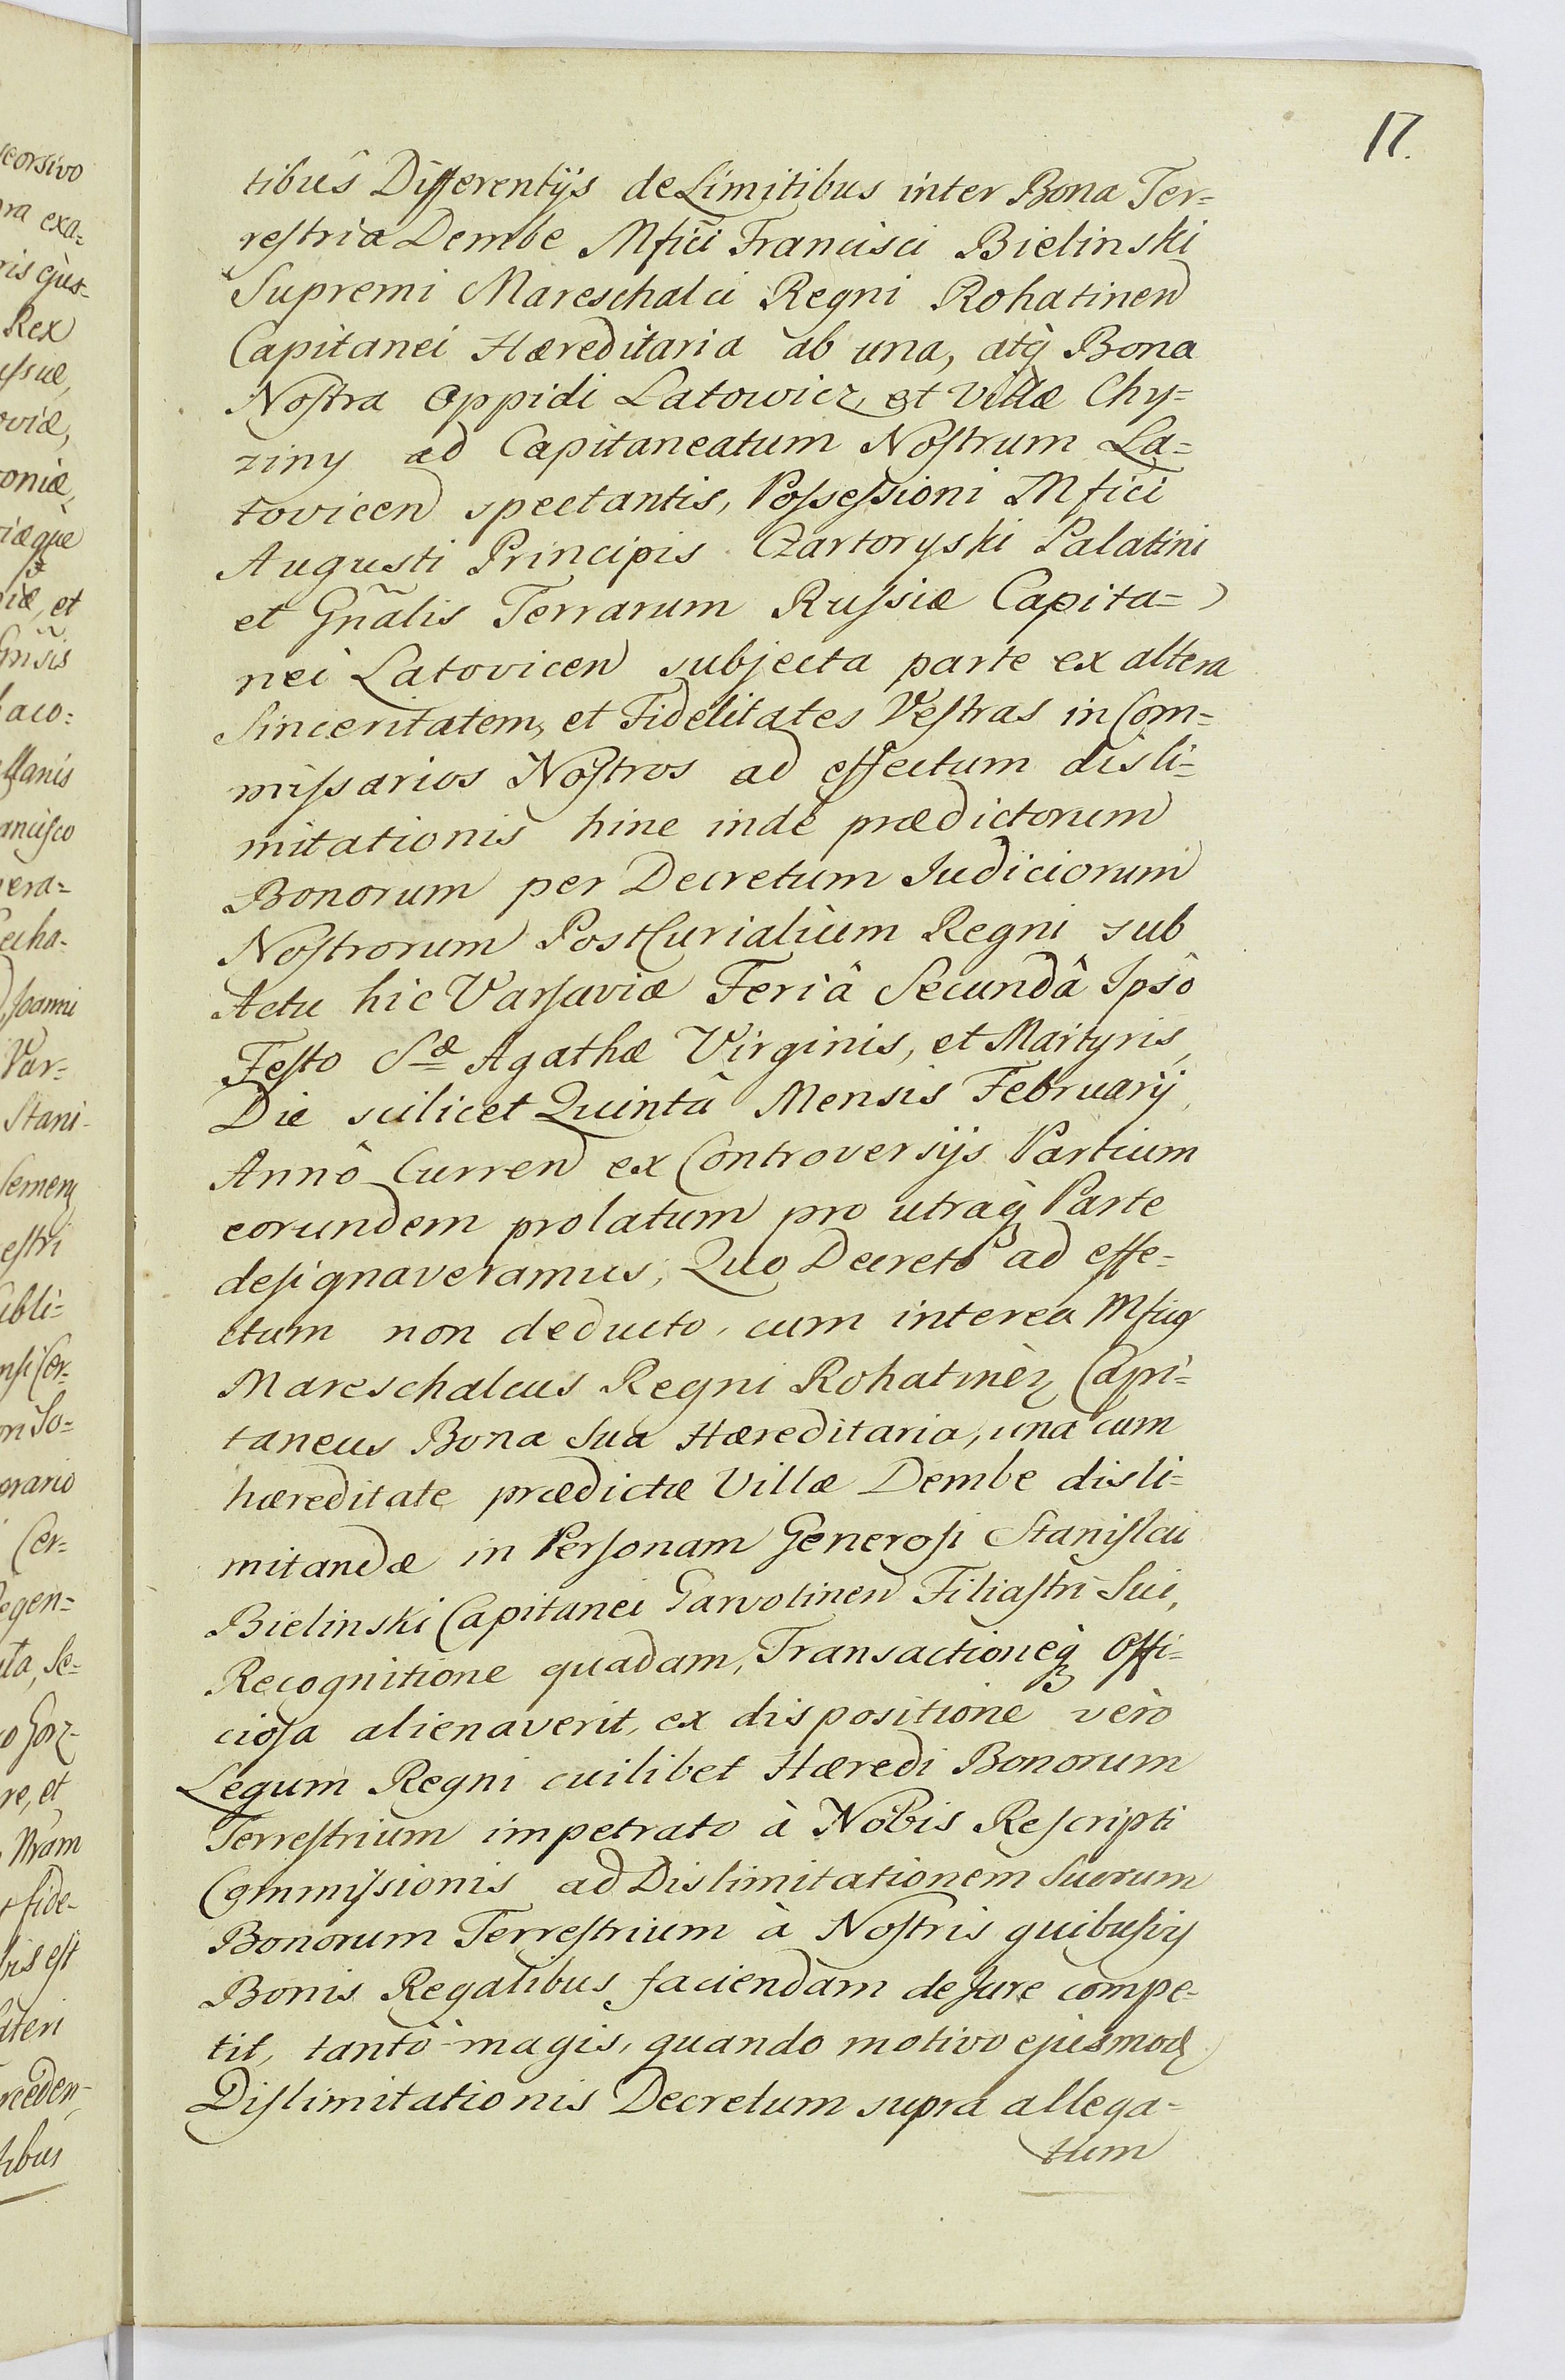 17.
tibûs Differentijs de Limitibus inter Bona Ter=
restria Dembe Mfici Francisci Bielinski
Supremi Mareschalci Regni Rohatinen
Capitanei Hæreditaria ab una, atq́ Bona
Nostra Oppidi Latowicz et Villæ Chy=
ziny ad Capitaneatum Nostrum La=
tovicen spectantis, Possessioni Mfici
Augusti Principis Czartoryski Palatini
et Gñalis Terrarum Russiæ Capita=
nei Latovicen subjecta parte ex altera
Sinceritatem, et Fidelitates Vestras in Com=
missarios Nostros ad effectum disli=
mitationis hinc inde prædictorum
Bonorum per Decretum Judiciorum
Nostrorum PostCurialium Regni sub
Actu hic Varsaviæ Feriâ Secundâ Ipsô
Festo Sæ Agathæ Virginis, et Martyris,
Die scilicet Quintâ Mensis Februarij
Annô Curren ex Controversijs Partium
eorundem prolatum pro utraq́ Parte
designaveramus, Quo Decreto ad effe=
ctum non deducto, cum interea Mficq
Mareschalcus Regni Rohatinen Capi=
taneus Bona Sua Hæreditaria, una cum
hæreditate prædictæ Villæ Dembe disli=
mitandæ in Personam Generosi Stanislai
Bielinski Capitanei Garvolinen Filiastri Sui,
Recognitione quadam, Transactioneq́ Offi=
ciosa alienaverit, ex dispositione vèro
Legum Regni cuilibet Hæredi Bonorum
Terrestrium impetrato à Nobis Rescripti
Commissionis ad Dislimitationem Suorum
Bonorum Terrestrium à Nostris quibusvis
Bonis Regalibus faciendam de Jure compe=
tit, tantò magis, quando motivo ejusmodi
Dislimitationis Decretum supra allega=
tum